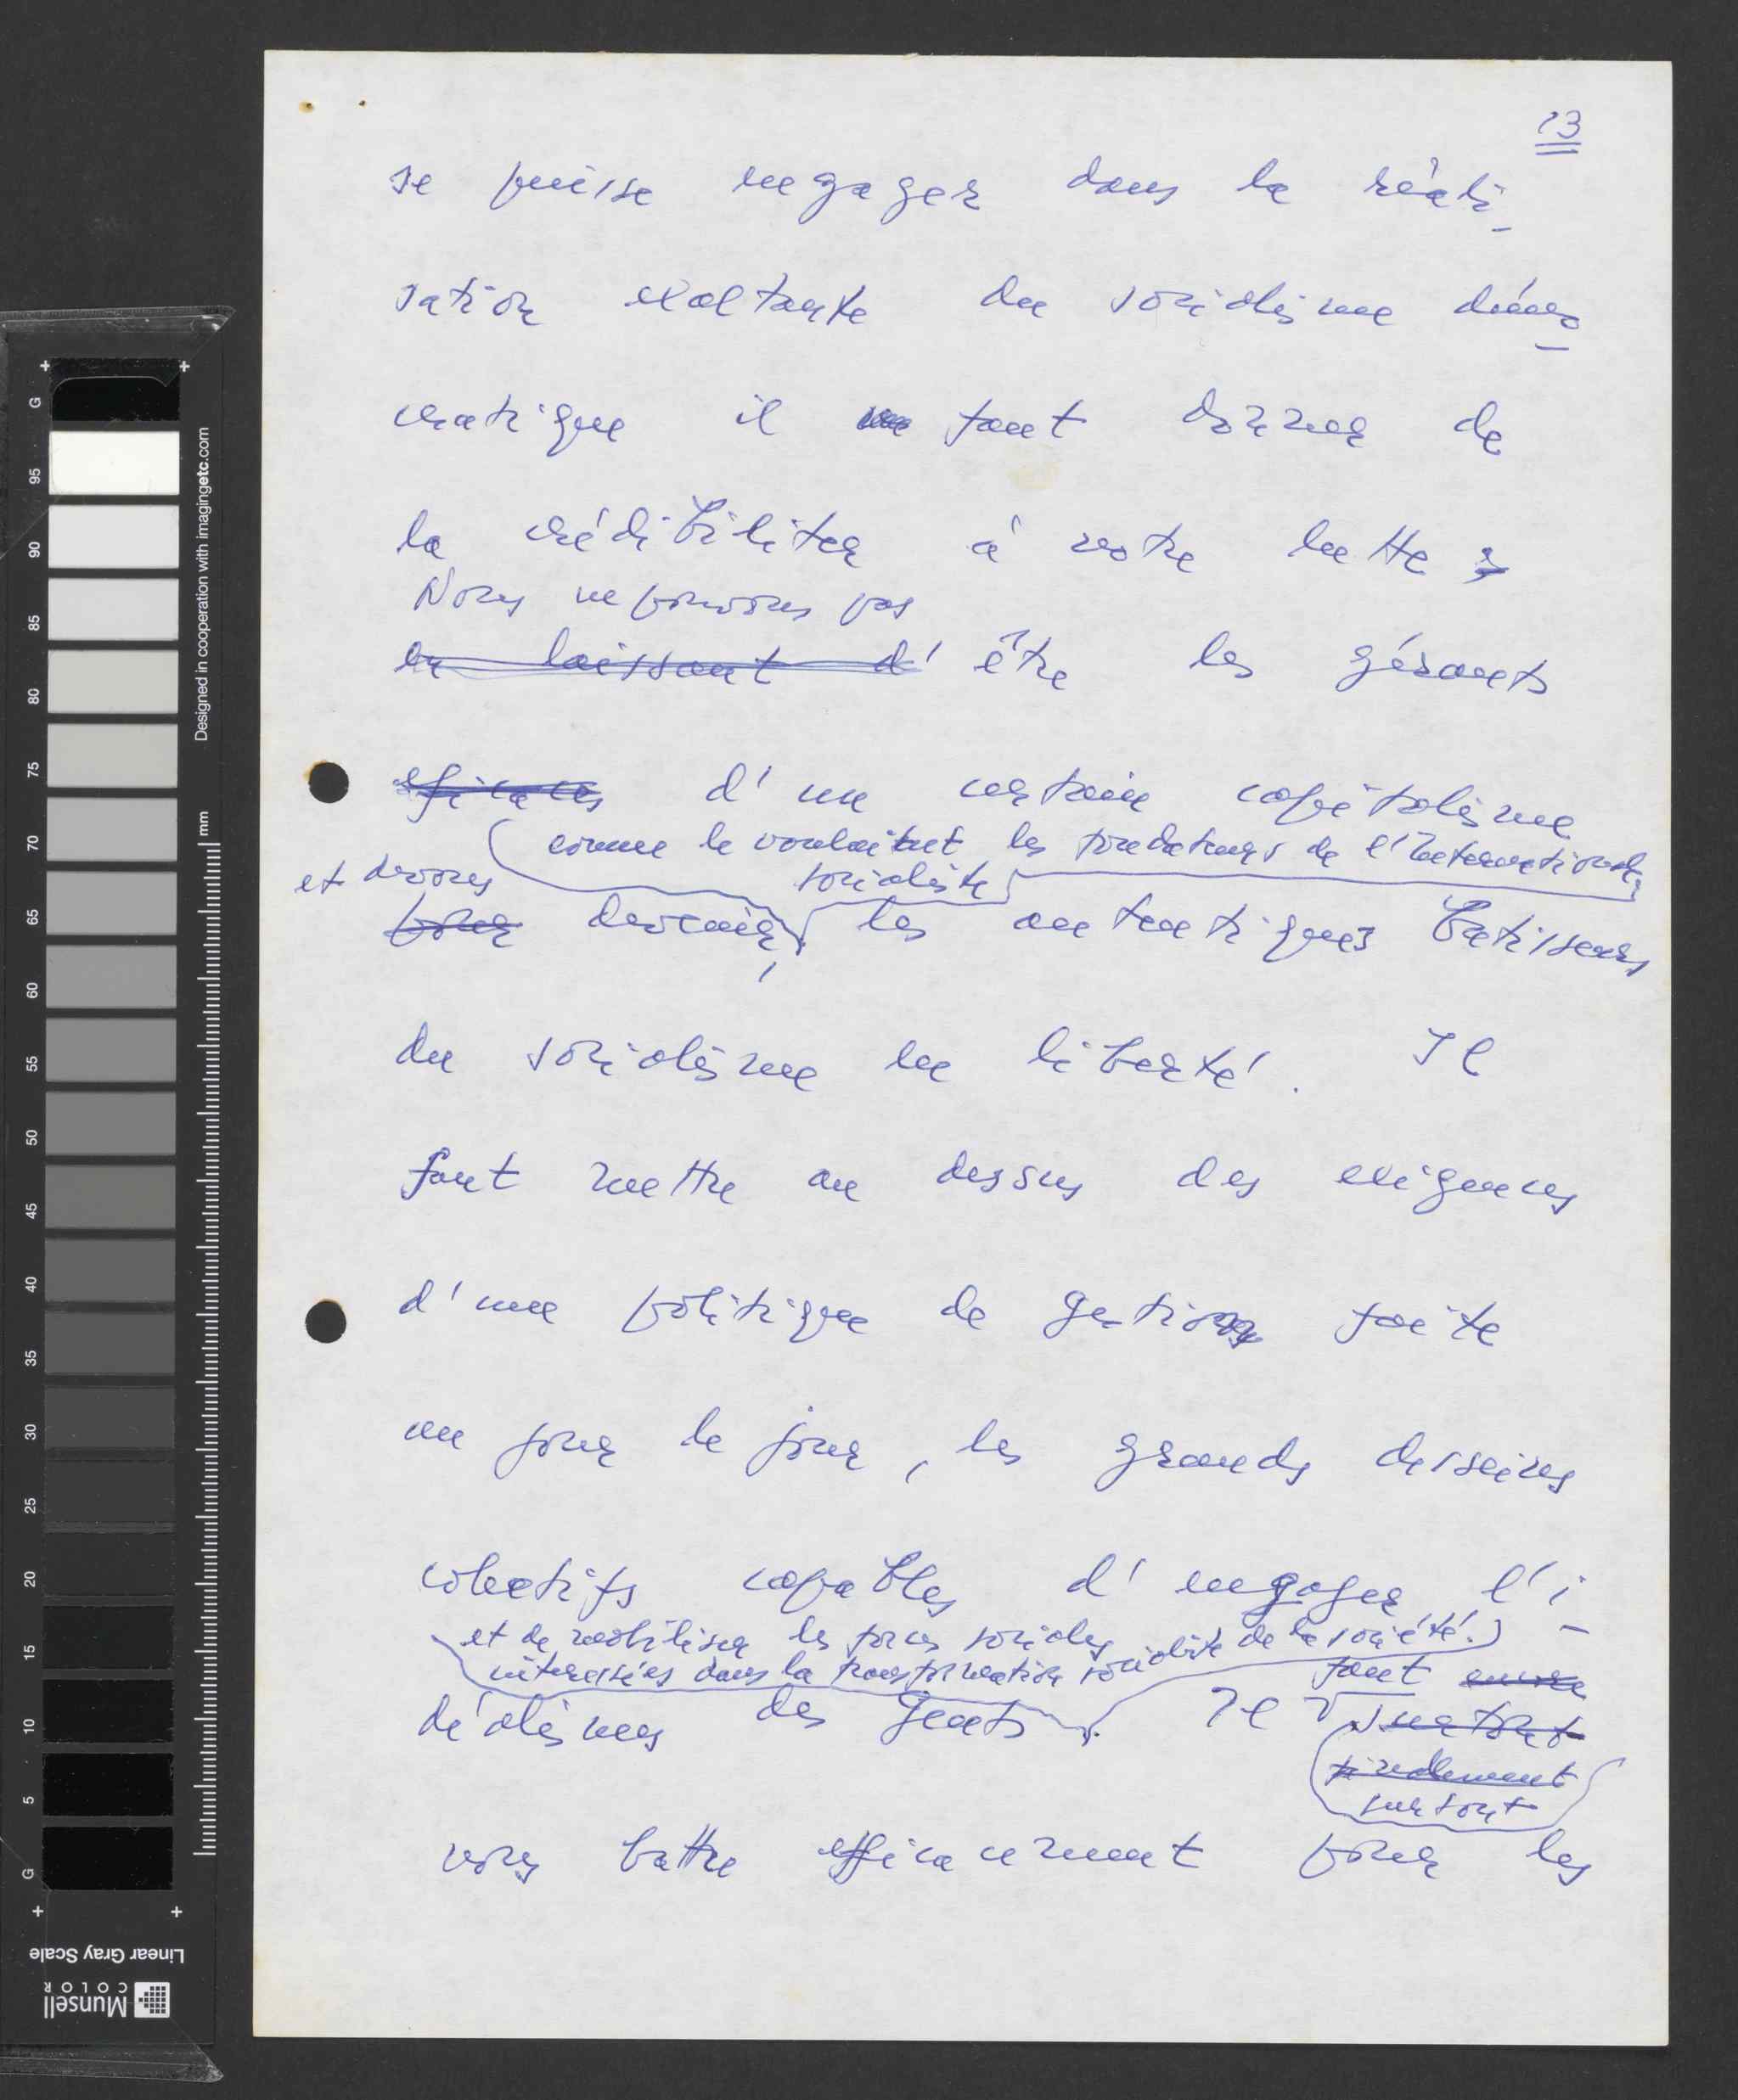 13
se puisse engager dans la réali-
sation exaltante du socialisme démo-
cratique il faut donner de
la crédibiliter à notre lutte
Nous ne pouvons pas
en laissant d' être les gérants
eficaces d'un certain capitalisme
comme le voulaient les fondateurs de l'Internationale
et devons socialiste
pour devenir, les autentiques batisseurs
du socialisme en liberté. Il
faut mettre au dessus des exigences
d'une politique de gestion faite
au jour le jour, les grands desseins
colectifs capables d'engager l'i-
et de mobiliser les forces sociales
interessées dans la transformation socialiste de la société.
faut
déalismes des gents. Il
finallement
surtout
nous battre efficacement pour les
G 95 90 85 80 75 70 65 60 55 50 45 40 35 30 25 20 15 10 5 G
mm
Designed in cooperation with imagingetc.com
Linear Gray Scale
Munsell
COLOR